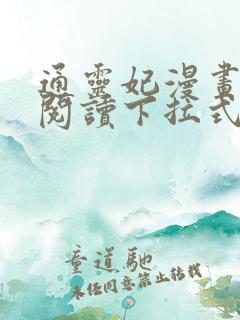 通靈妃漫畫
閱讀下拉式
童道馳
未經同意禁止轉載